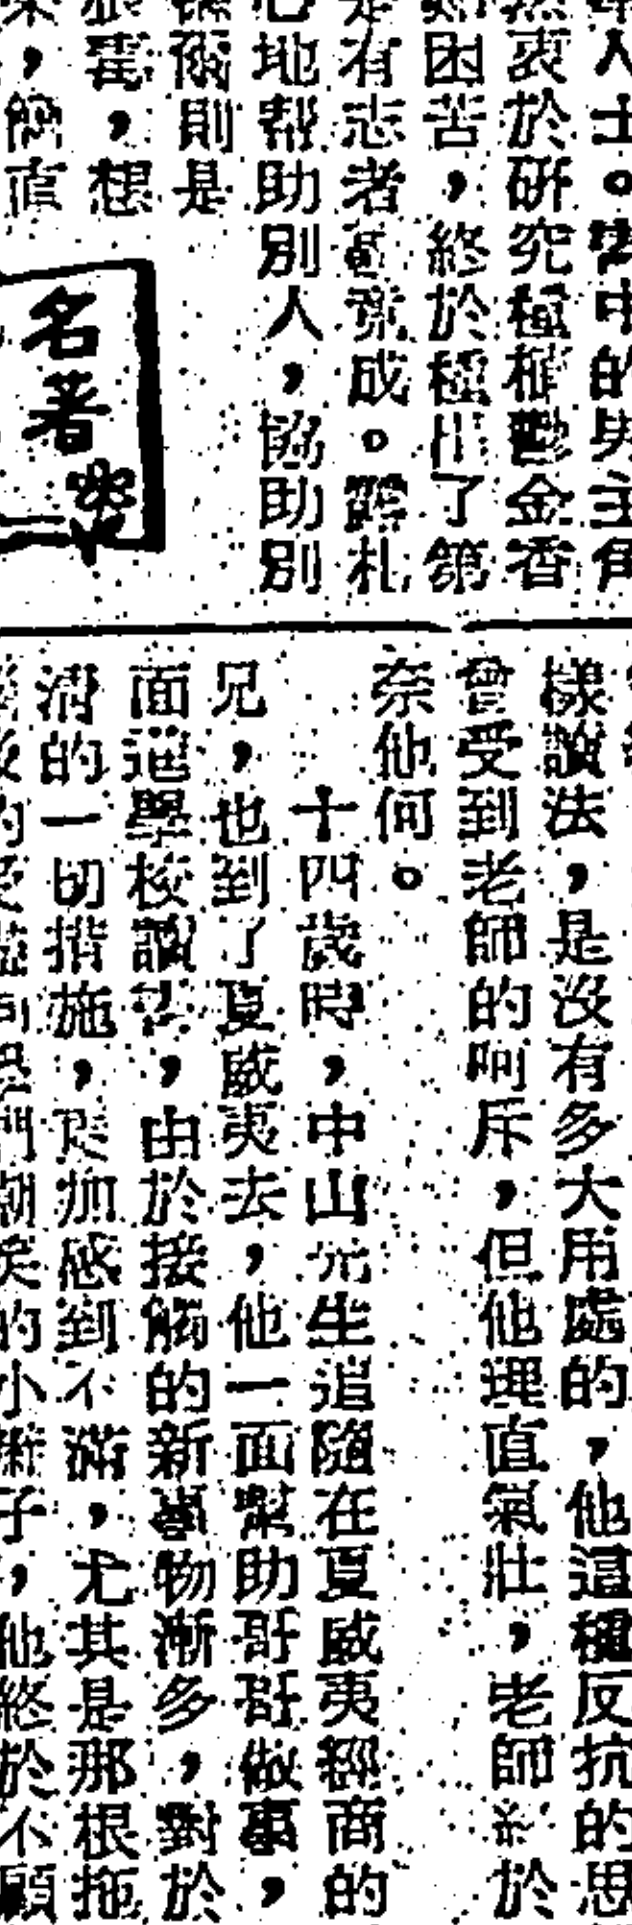 人士。書中的男主角
衷於研究種植鬱金香
困苦，終於種出了第
是有志者事竟成。
心地幫助別人，協助別
爾則是
，想
，簡直
名著
樣讀法，是沒有多大用處的，他這種反抗的思
曾受到老師的呵斥，但他理直氣壯，老師終於
奈他何。
十四歲時，中山先生追隨在夏威夷經商的
兄，也到了夏威夷去，他一面幫助哥哥做事，
面進學校讀書，由於接觸的新事物漸多，對於
清的一切措施，更加感到不滿，尤其是那根拖
的小辮子，他終於不願